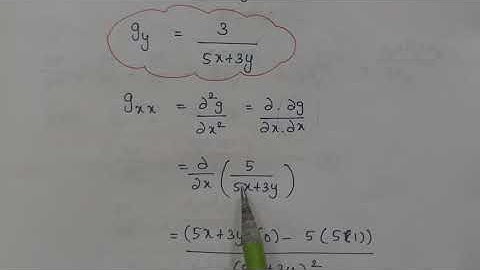 g_y = 3/(5x+3y)
g_xx = ∂²g/∂x² = ∂.∂g/∂x.∂x
= ∂/∂x (5/(5x+3y))
= ((5x+3y)(0) - 5(5(1))/(5x+3y)²